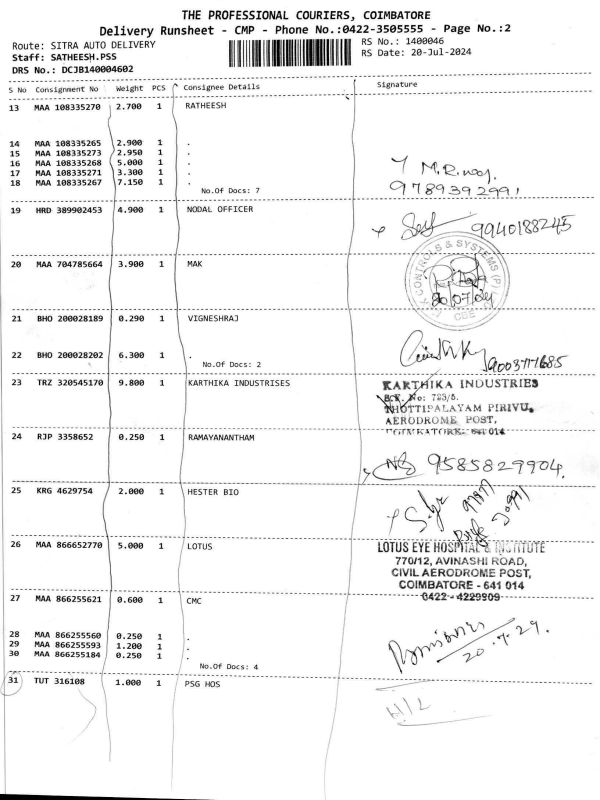 THE PROFESSIONAL COURIERS, COIMBATORE
Delivery Runsheet - CMP - Phone No.:0422-3505555 - Page No.:2
Route: SITRA AUTO DELIVERY
RS No.: 1400046
Staff: SATHEESH.PSS
RS Date: 20-Jul-2024
DRS No.: DCJB140004602
S No Consignment No Weight PCS Consignee Details Signature
13 MAA 108335270 2.700 1 RATHEESH
14 MAA 108335265 2.900 1 .
15 MAA 108335273 2.950 1 .
16 MAA 108335268 5.000 1 .
17 MAA 108335271 3.300 1 .
18 MAA 108335267 7.150 1 .
No.Of Docs: 7
9789392991
19 HRD 389902453 4.900 1 NODAL OFFICER
9940188245
20 MAA 704785664 3.900 1 MAK
CONTROLS & SYSTEMS (P)
CBE
21 BHO 200028189 0.290 1 VIGNESHRAJ
22 BHO 200028202 6.300 1 .
No.Of Docs: 2
9003771685
23 TRZ 320545170 9.800 1 KARTHIKA INDUSTRISES
KARTHIKA INDUSTRIES
S.F. No: 723/5.
THOTTIPALAYAM PIRIVU,
AERODROME POST,
COIMBATORE- 641 014
24 RJP 3358652 0.250 1 RAMAYANANTHAM
9585829904.
25 KRG 4629754 2.000 1 HESTER BIO
26 MAA 866652770 5.000 1 LOTUS
LOTUS EYE HOSPITAL & INSTITUTE
770/12, AVINASHI ROAD,
CIVIL AERODROME POST,
COIMBATORE - 641 014
0422 - 4229909
27 MAA 866255621 0.600 1 CMC
28 MAA 866255560 0.250 1 .
29 MAA 866255593 1.200 1 .
30 MAA 866255184 0.250 1 .
No.Of Docs: 4
20.7.24.
31 TUT 316108 1.000 1 PSG HOS